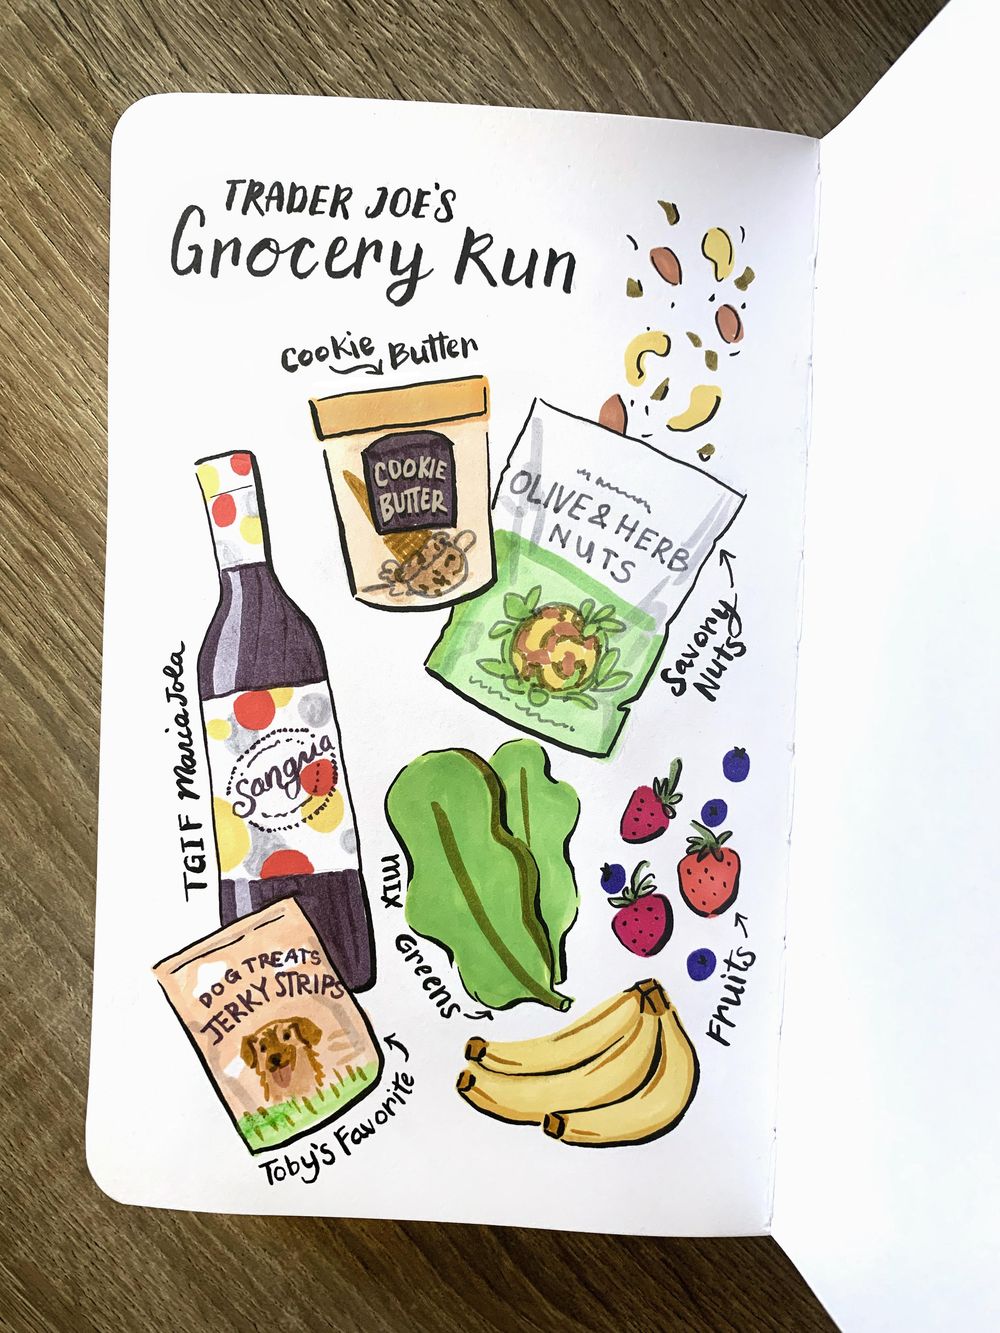 TRADER JOE'S
Grocery Run
Cookie Butter
COOKIE
BUTTER
OLIVE & HERB
NUTS
Savory
Nuts
TGIF Maria Jola
Sangria
MIX
Greens
Fruits
DOG TREATS
JERKY STRIPS
Toby's Favorite